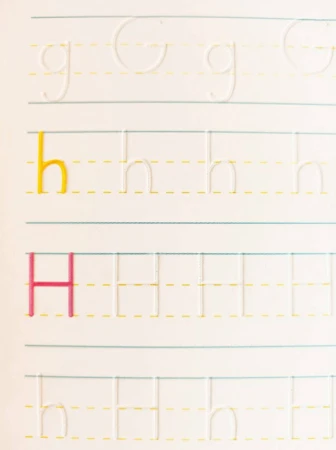 g G g G
h h h h
H H H H
h H h H